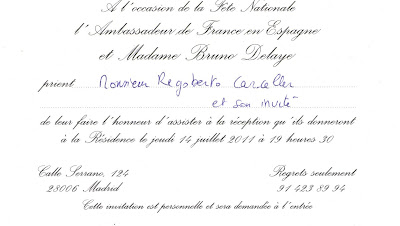 A l'occasion de la Fête Nationale
l'Ambassadeur de France en Espagne
et Madame Bruno Delaye
prient Monsieur Regoberto Carceller
et son invité
de leur faire l'honneur d'assister à la réception qu'ils donneront
à la Résidence le jeudi 14 juillet 2011 à 19 heures 30
Calle Serrano, 124
28006 Madrid
Regrets seulement
91 423 89 94
Cette invitation est personnelle et sera demandée à l'entrée